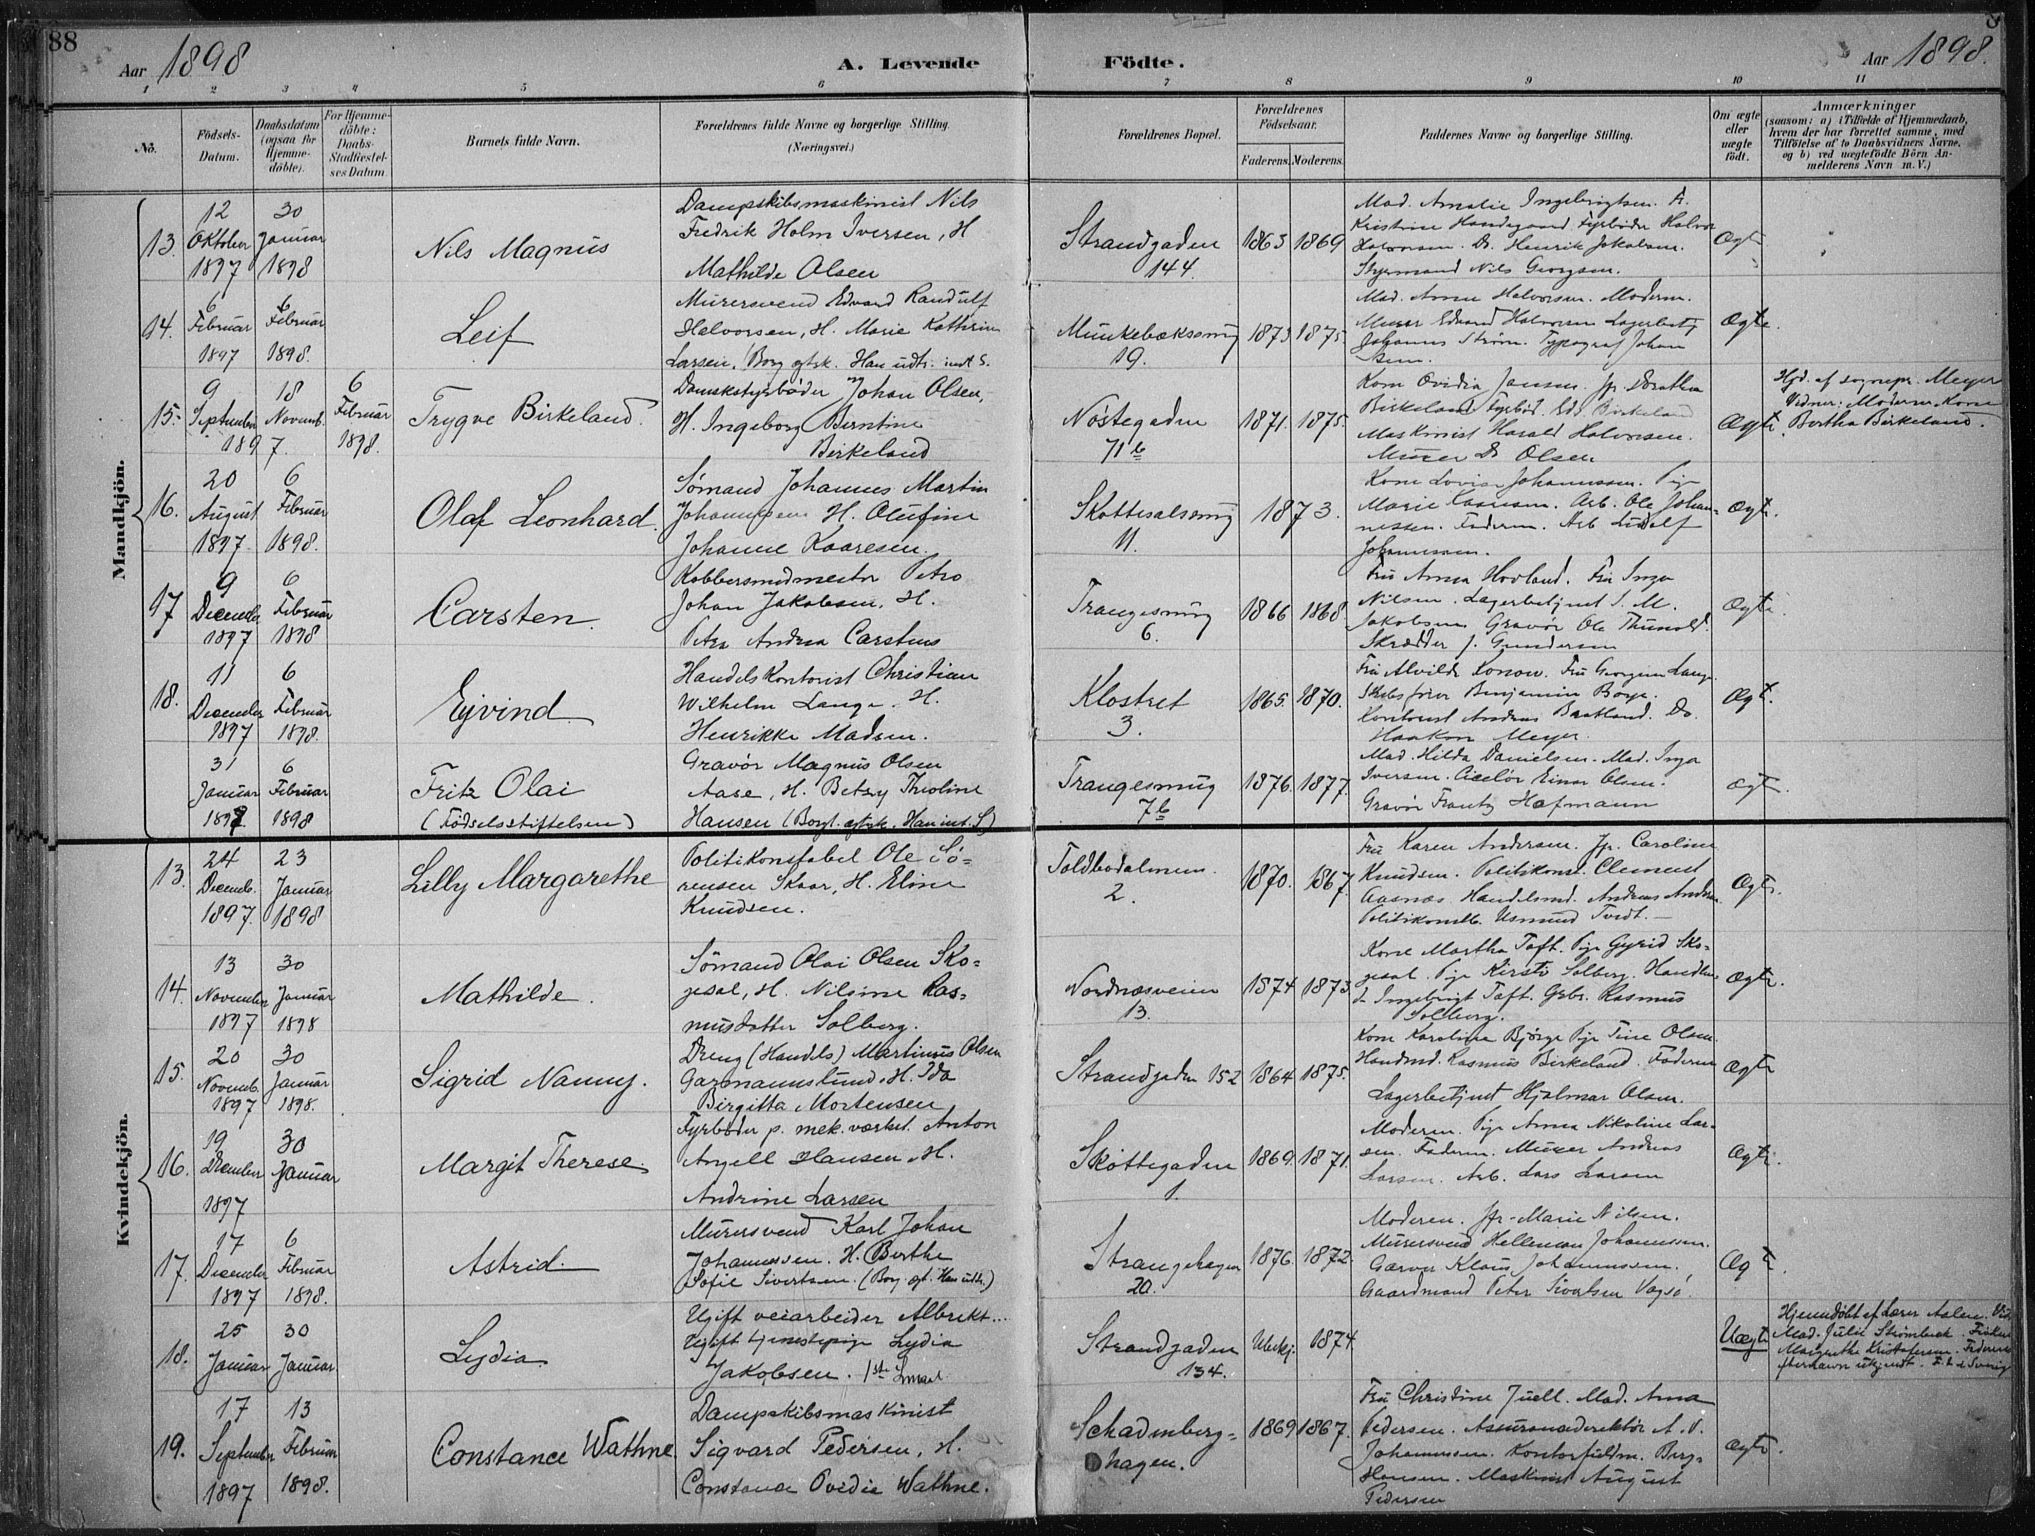 88
Aar 1898
A. Levende
Födte.
Aar 1898.
1 2 3 4 5 6 7 8 9 10 11
No.
Födsels-
Datum.
Daabsdatum
(ogsaa for
Hjemme-
döbte).
For Hjemme-
döbte:
Daabs-
Stadfæstel-
ses Datum.
Barnets fulde Navn.
Forældrenes fulde Navne og borgerlige Stilling.
(Næringsvei.)
Forældrenes Bopæl.
Forældrenes
Födselsaar.
Faderens. Moderens.
Faddernes Navne og borgerlige Stilling.
Om ægte
eller
uægte
födt.
Anmærkninger
(saasom: a) i Tilfælde af Hjemmedaab,
hvem der har forrettet samme, med
Tilföielse af to Daabsvidners Navne,
og b) ved uægtefödte Börn An-
melderens Navn m. V.)
Mandkjön.
13. 12 Oktober 1897 30 Januar 1898
Nils Magnus
Dampskibsmaskinist Nils
Fredrik Holm Iversen, H
Mathilde Olsen
Strandgaden
144
1863 1869
Mad. Amalie Ingebrigtsen. Fr.
Kristine Fyrbøder Halvor
Halvorsen. Do. Henrik Jakobsen.
Styrmand Nils Georgsen.
Ægte
14. 6 Februar 1897 6 Februar 1898.
Leif
Murersvend Edvard Randulf
Halvorsen, H. Marie Kathrine
Larsen. (Borg. egtsk. Han udtr.
Munkebæksmug
19.
1873 1875.
Mad. Anna Halvorsen. Moderen.
Murer Edvard Halvorsen Lagerbetj
Johannes Strøm. Typograf Johan
Ægte.
15. 9 September 18 Novemb. 1897. 6 Februar 1898.
Trygve Birkeland.
Johan Olsen,
H. Ingeborg Berntine
Birkeland
Nøstegaden
71 b
1871. 1875.
Kone Ovidia Jansen. Jfr. Dorothea
Birkeland Fyrbød. Edv. Birkeland
Maskinist Harald Halvorsen.
Murer Olsen
Ægte.
Hjd. af sognepr. Meyer
Vidner: Moderen, Kone
Bertha Birkeland.
16. 20 August 1897 6 Februar 1898.
Olaf Leonhard.
Sømand Johannes Martin
Johannesen H. Olufine
Johanne Kaaresen.
Skottesalsmug
11.
1873.
Kone Lovise Johannessen. Pige
Marie Arb. Ole Johan-
nessen. Faderen. Arb. Ludolf
Johannessen.
Ægte.
17 9 December 1897 6 Februar 1898
Carsten.
Kobbersmedmester Petro
Johan Jakobsen, H.
Petra Andrea Carstens
Trangesmug
6.
1866 1868
Fru Anna Hovland. Frk Inga
Nilsen. Lagerbetjent S. M.
Jakobsen Gravør Ole Thunold.
Skrædder J. Gundersen
Ægte
18. 11 December 1897 6 Februar 1898.
Ejvind.
Handelskontorist Christian
Wilhelm Lange. H.
Henrikke Madsen.
Klostret
3.
1865. 1870.
Fru Alvilde Konow. Fru Georgine Lange.
Skibsfører Benjamin Boye.
Kontorist Andreas Do.
Haakon Meyer.
Ægt.
31 Januar 1898 6 Februar 1898
Fritz Olai
(Födselsstiftelsen)
Gravør Magnus Olsen
Aase, H. Betzy Thioline
Hansen (Borgl. egtsk. Han int. S)
Trangesmug
7 b
1876. 1877.
Mad. Hilda Danielsen. Mad. Inga
Iversen. Ciselør Einar Olsen.
Gravør Frantz Hofmann
Ægte.
Kvindekjön.
13. 24 Decemb. 1897. 23 Januar 1898
Lilly Margarethe
Politikonstabel Ole Sø-
rensen Skaar, H. Eline
Knudsen.
Toldbodalmen.
2.
1870. 1867.
Fru Karen Andersen. Jfr. Caroline
Knudsen. Politikonst. Clement
Aasnæs. Handelsmd. Andreas Anders
Politikonstb. Usmund Tvedt. —
Ægte.
14. 13 November 1897 30 Januar 1898
Mathilde.
Sømand Olai Olsen Sko-
gesal, H. Nilsine Ras-
musdatter Solberg.
Nordnæsveien
13.
1874 1873.
Kone Martha Toft. Pige Gyrid Sko-
gesal. Pige Kirsti Solberg. Handlen
de Ingebrigt Toft. Gbr. Rasmus
Solberg.
Ægte.
15. 20 Novemb. 1897 30 Januar 1898.
Sigrid Nanny.
Dreng (Handels) Martinus Olsen
Garmannslund, H. Ida
Birgitta Mortensen
Strandgaden 152
1864 1875.
Kone Karolina Bjørge Pige Tine Olsen.
Handmd. Rasmus Birkeland. Faderen
Lagerbetjent Hjalmar Olsen.
Ægte
16. 19 December 1897 30 Januar
Margit Therese
Fyrbøder p. mek. værkst. Anton
Angell Hansen, H.
Andrine Larsen
Skottegaden
1.
1869. 1871.
Moderen. Pige Anna Nikoline Lar-
sen. Faderen. Murer Andreas
Larsen. Arb. Lars Larsen
Ægte.
17. 17 December 1897 6 Februar 1898.
Astrid.
Murersvend Karl Johan
Johannessen. H. Berthe
Sofie Sivertsen. (Borg. egt. Han udtr.)
Strangehagen
20.
1876. 1872.
Moderen. Jfr. Marie Nilsen.
Murersvend Helleman Johannessen.
Garver Klaus Johannessen.
Gaardmand Peter Sivertsen Vagsø.
Ægt.
18. 25 Januar 30 Januar
Lydia
Ugift veiarbeider Albrekt...
Ugift tjenestepige Lydia
Jakobsen.
Strandgaden
134.
Ubekj. 1874.
Uægte
Hjemdøbt af Lærer
Mad. Julie
Margrethe Kristofersen. Faderens
efternavn ukjendt.
19. 17 September 1897 13 Februar 1898.
Constance Wathne.
Dampskibsmaskinist
Sigvard Pedersen, H.
Constance Ovidia Wathne.
Schadenberg-
hagen.
1869 1867.
Fru Christine Juell. Mad. Anna
Pedersen. Assurancedirektør A. D.
Johannessen. Kontorfuldm. Berg-
Hansen. Maskinist August
Pedersen
Ægte.